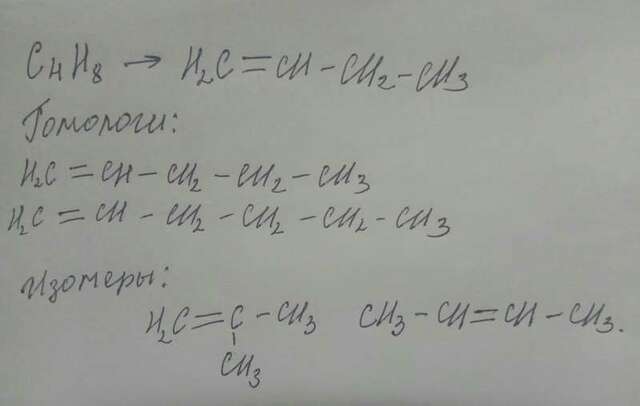 C4H8 → H2C=CH-CH2-CH3
Гомологи:
H2C=CH-CH2-CH2-CH3
H2C=CH-CH2-CH2-CH2-CH3
Изомеры:
H2C=C-CH3 CH3-CH=CH-CH3.
CH3